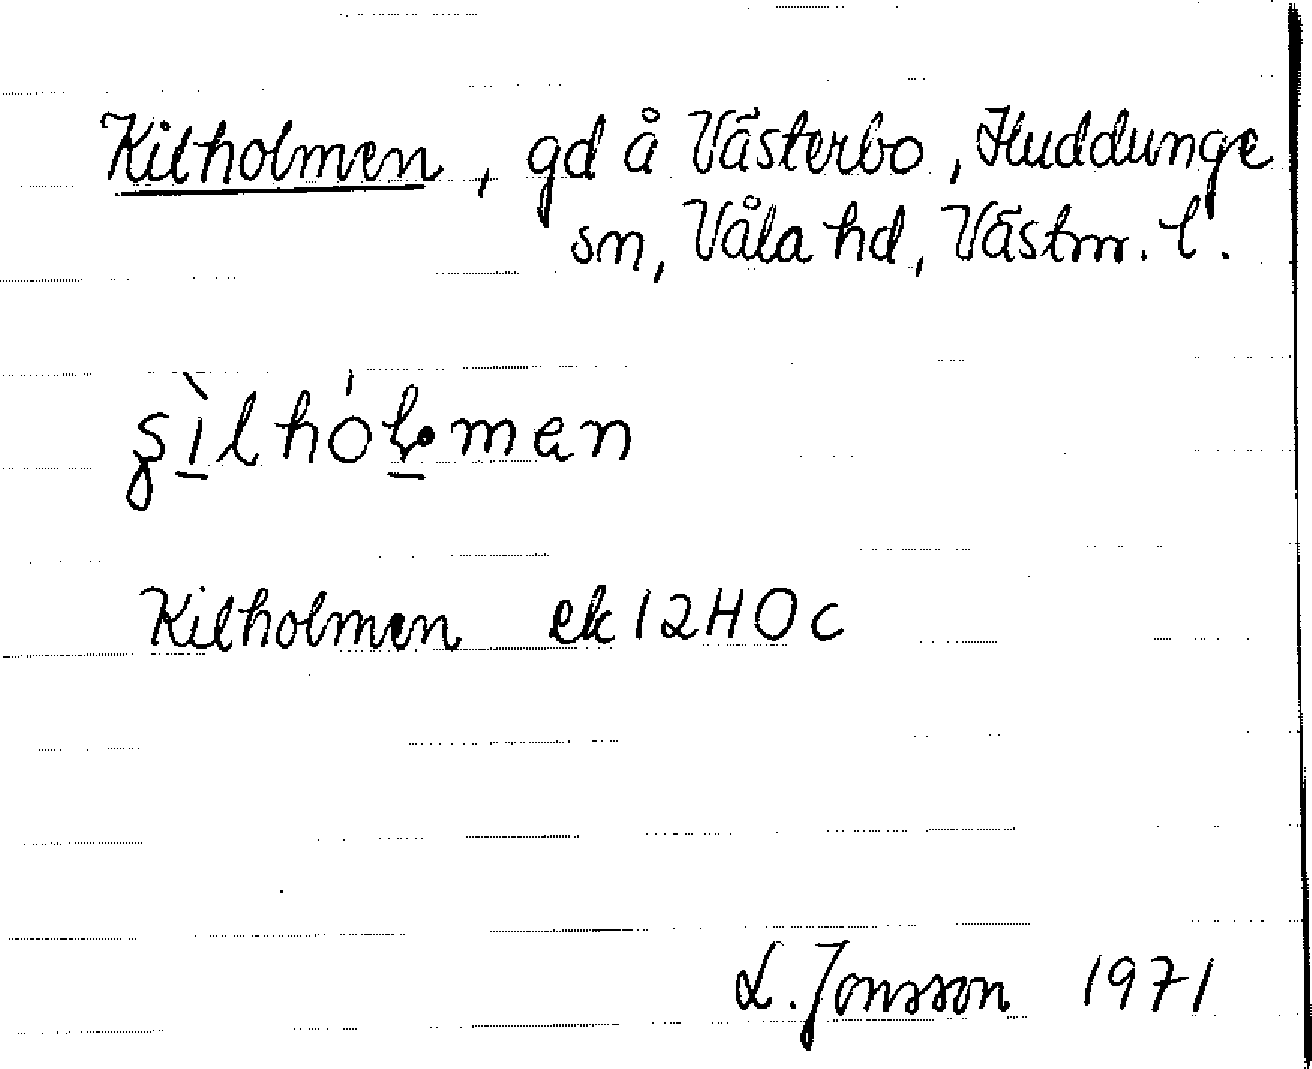 Kilholmen, gd å Västerbo, Huddunge
sn, Våla hd, Västm. l.
Kilholmen ek 12H0c
L. Jonsson 1971